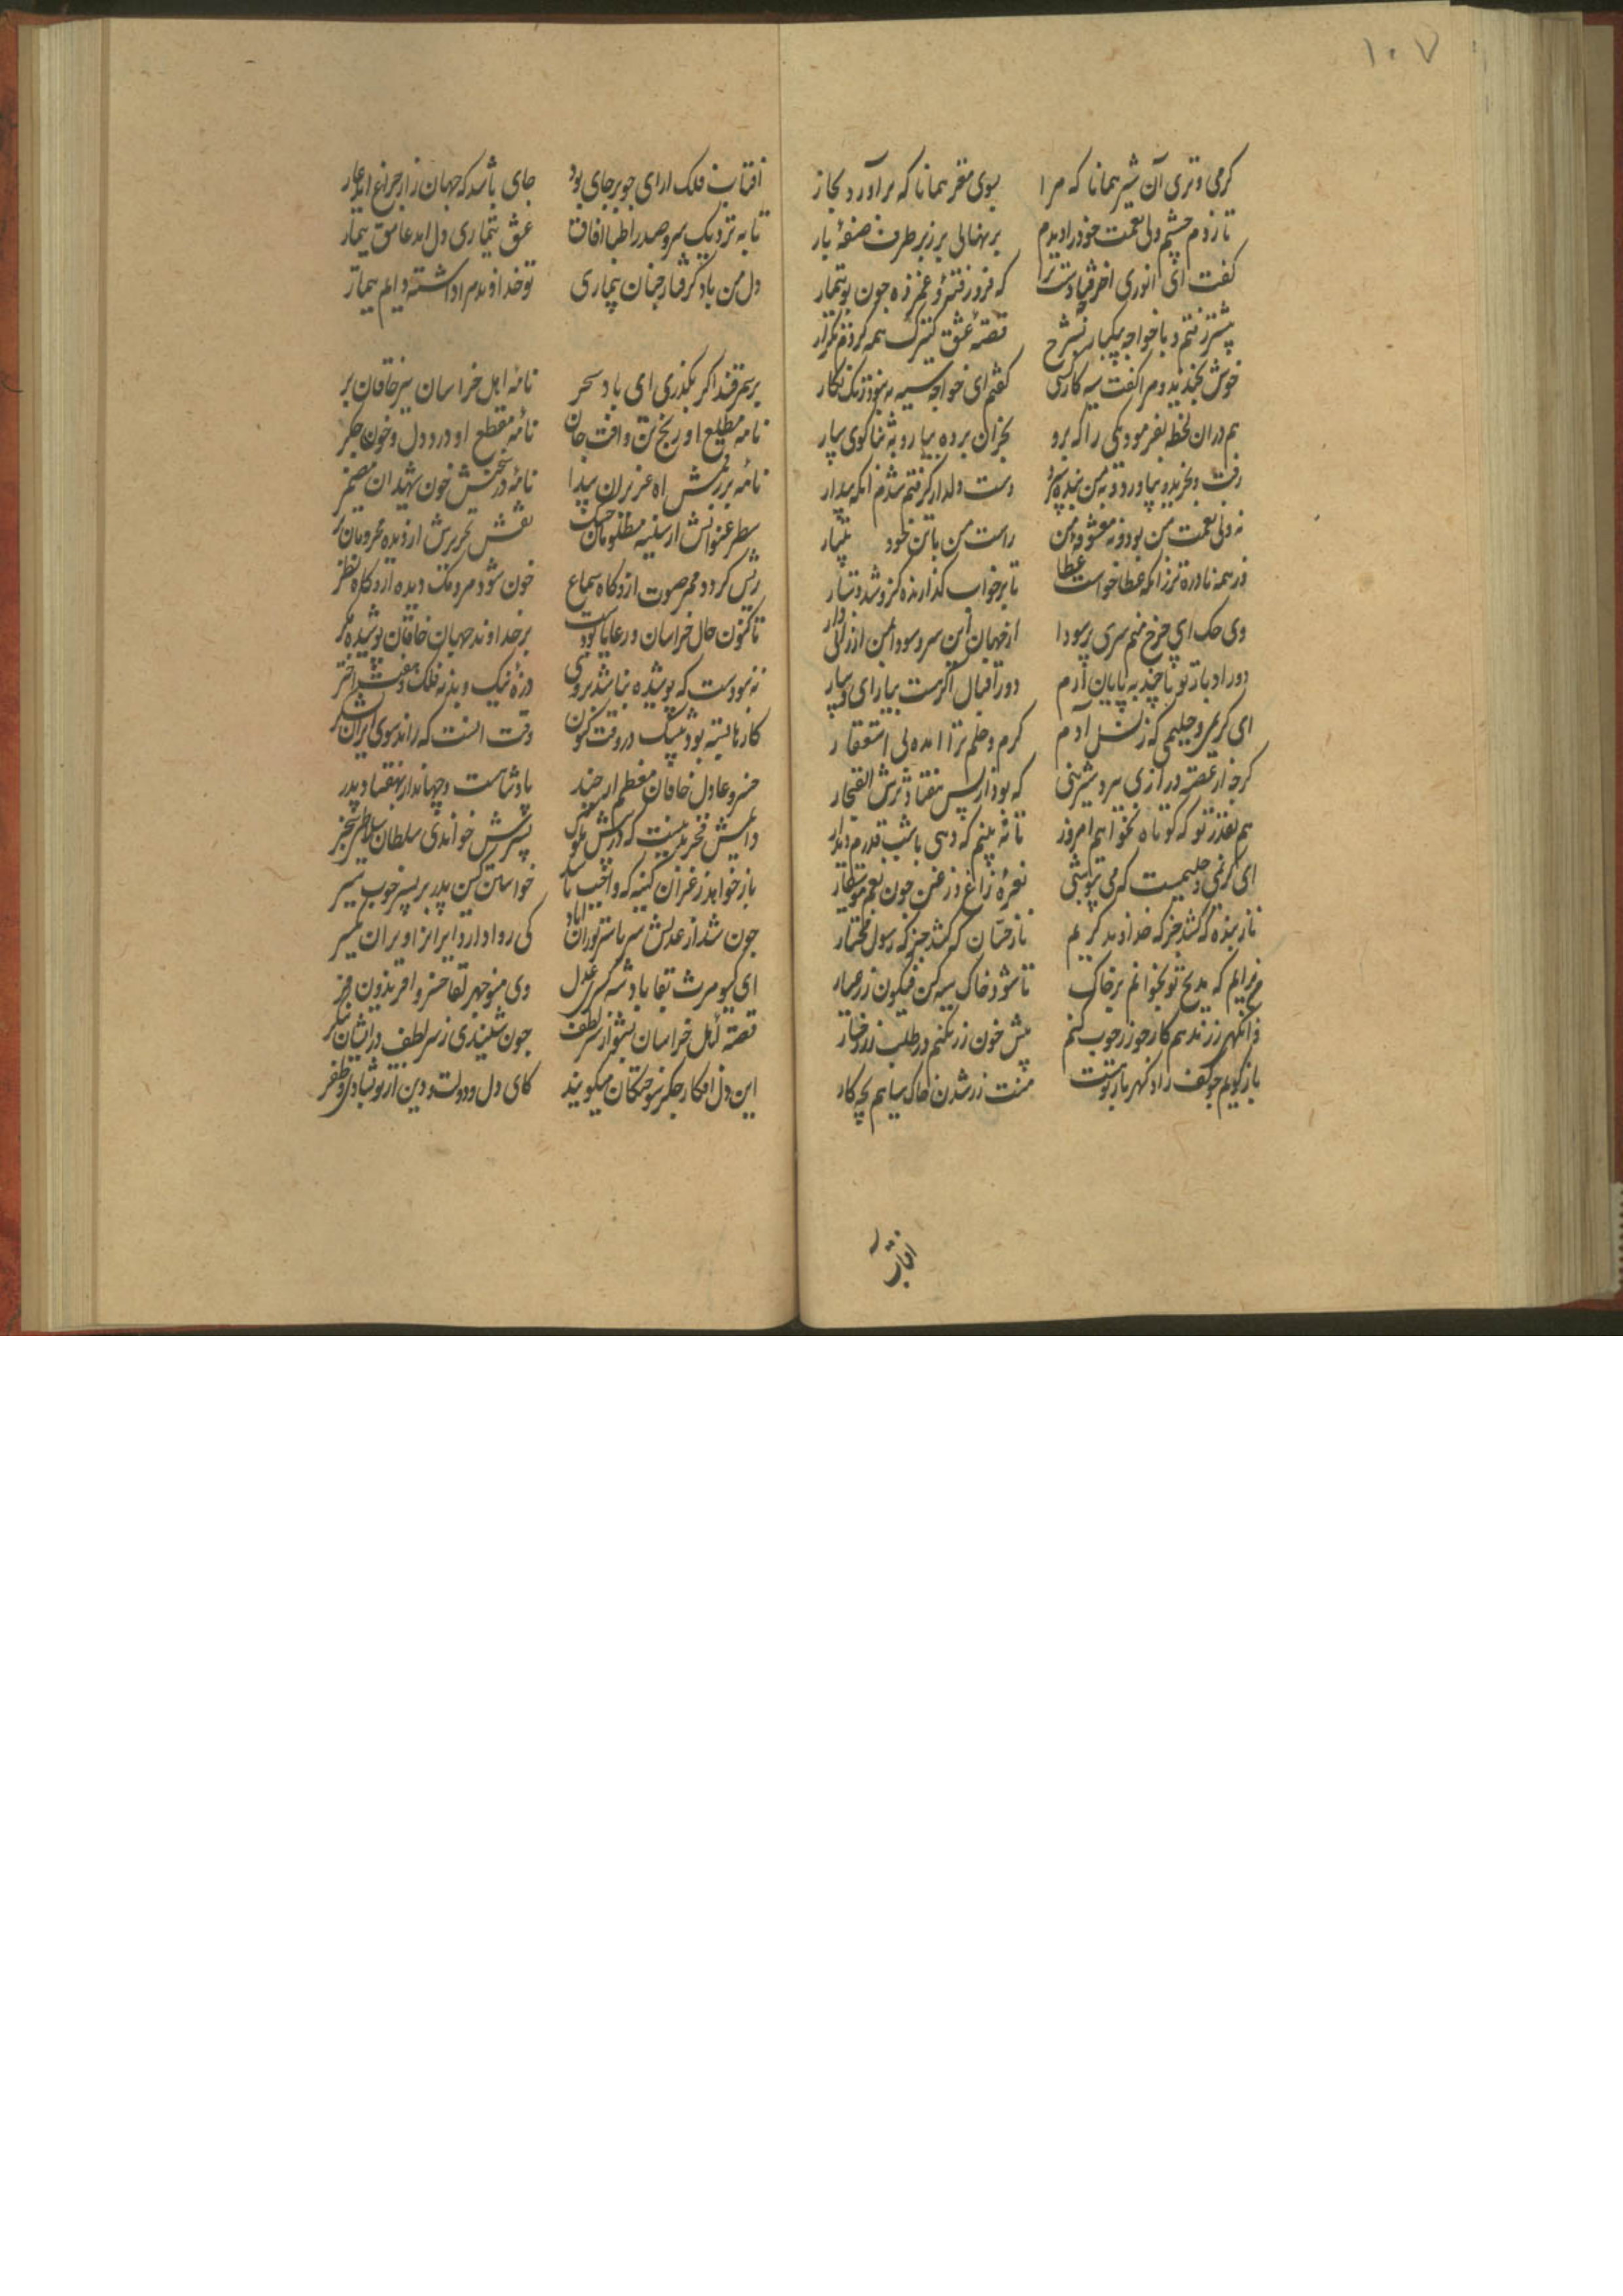 ۱۰۷
کرمی و تری آن شیر همانا که مرا بسوی مغز همانا که برآورد بخار
تا زدم چشم ولی نعمت خود را دیدم بر نهالی بزر بر طرف صفهٔ بار
کفت ای انوری اخر چه فتادست ترا که فرو رفتهٔ و غم زده جون بوتیمار
پیشتر رفتم و با خواجه بیکبار بشرح قصهٔ عشق کنیزک همه کردم تکرار
خوش بخندید و مرا کفت سیه کارکسی کفتم ای خواجه سیه به بنود زنک نکار
هم در ان لحظه بفرمود یکی را که برو بخر ان برده بیار و بثناکوی سپار
رفت و بخرید و بیاورد و بمن بنده سپرد دست دلدار کرفتم شدم انکه بیدار
نه ولی نعمت من بود و نه معشوقهٔ من راست من با تن خود
در همه نادره تر زانکه عطا خواست عطا تا بر خواب کذارنده کزو شد
وی حک ای چرخ منم سری پر سودا از جهان این سر و سودا بمن ارزانی دار
دور ادبار تو تا چند به پایان آرم دور اقبال اکر هست بیار ای
ای کریمی و حلیمی که ز نسل آدم کرم و حلم ترا امده بی استغفار
کر چه از غصه درازی ببرد شیرینی که بود از پس هفتاد
هم بقدر تو که کوتاه نخواهم امروز تا نه بینم که دهی باشب قدرم دیدار
ای کریمی و حلیمیست که می نیوشی نعرهٔ زاغ و زغن جون نغم موسیقار
ناز بنده که کشد جز که خداوند کریم ناز حسان که کشد جز که رسول مختار
من برانم که مدیح تو بخوانم بر خاک تا شود خاک سیه کن فیکون زر عیار
زر زند هم کار جو زر خوب کنم پیش خون زر نکنم در طلب زر رخسار
باز کویم جو کف راد کهر بار تو هست منت زر شدن خاک سیاهم بچه کار
افتاب
آفتاب فلک ارای جو بر جای بود جای باشد که جهان را ز چراغ اید عار
تا به نزدیک سر و صدر اطبا افاق عشق بیماری دل اید عاشق بیمار
دل من باد کرفتار جنان بیماری تو خداوند مرا داشته دایم بیمار
بر سمرقند اکر بکذری ای باد سحر نامه اهل خراسان ببر خاقان بر
نامه مطلع او رنج تن و افت جان نامهٔ مقطع او درد دل و خون جکر
نامهٔ بر رقمش اه عزیزان پیدا نامهٔ در شکنش خون شهیدان مضمر
سطر عنوانش از سینه مظلومان خشک نقش تحریرش از دیده محرومان تر
ریش کردد ممر صوت ازو کاه سماع خون شود مردمک دیده ازو کاه نظر
تا کنون حال خراسان و رعایا بودست بر خداوند جهان خاقان پوشیده مکر
نه نبودست که پوشیده نباشد بر وی ذرهٔ نیک و بد نه فلک و هفت اختر
کارها بسته بود بیشک در وقت کنون وقت انست که راند سوی ایران لشکر
خسرو عادل خاقان معظم پادشاست و جهاندار بهفتاد پدر
دایمش فخر باینست که در پیش ملوک پسرش خواندی سلطان سلاطین سنجر
باز خواهد ز غزان کینه که واجب باشد خواستن کین پدر بر پسر خوب سیر
جون شد از عدلش سرتاسر توران اباد کی روا دارد ایران را ویران یکسر
ای کیومرث بقا پادشه کسری عدل وی منوجهر لقا خسرو افریدون فر
قصهٔ اهل خراسان بشنو از سر لطف جون شنیدی ز سر لطف در ایشان بنکر
این دل افکار جکر سوختکان میکویند کای دل و دولت و دین از تو شادی و ظفر